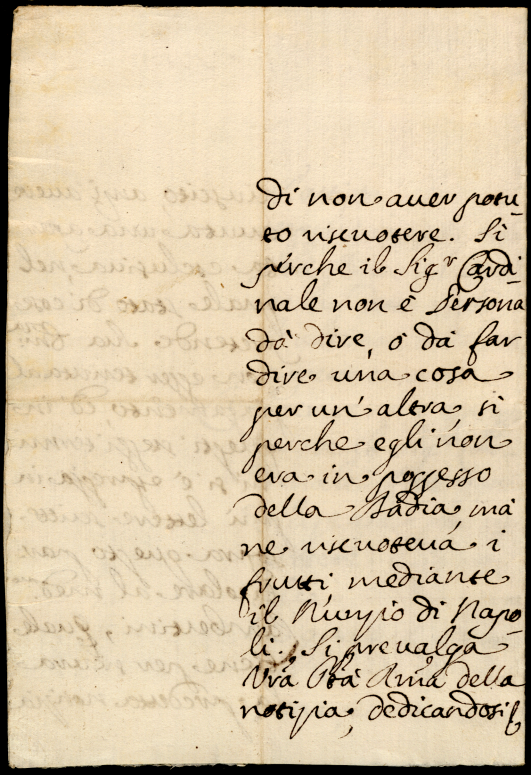 di non auer potu-
to riscuotere. Si
perche il Sig.r Cardi-
nale non è Persona
dà dire, ò dà far
dire una cosa
per un' altra, si
perche egli non
era in possesso
della Badia, mà
ne riscuoteuà i
frutti mediante
il Nunzio di Napo-
li. Si preualga
Vrà Ptà Rmà della
notizia, dedicandosi